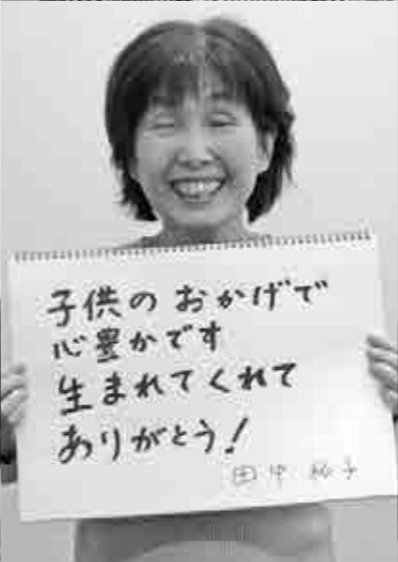 子供のおかげで
心豊かです
生まれてくれて
ありがとう!
田中 裕子